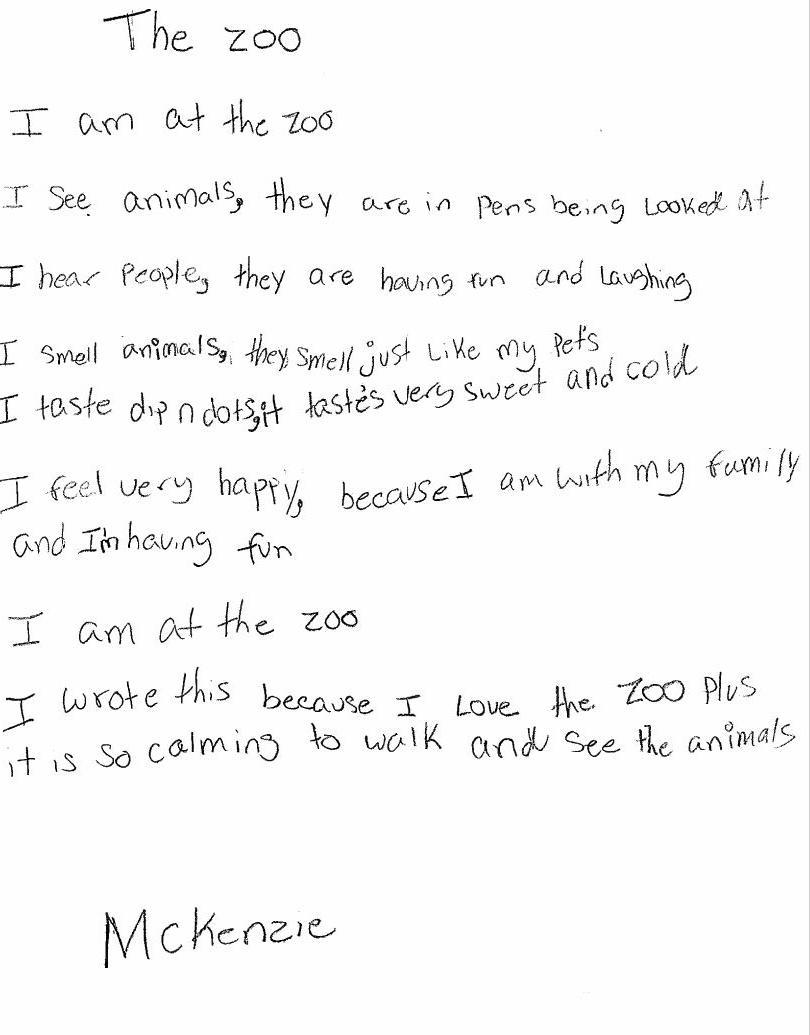 The zoo
I am at the zoo
I see animals, they are in pens being looked at
I hear people, they are having fun and laughing
I smell animals, they smell just like my pet's
I taste dip n dots, it taste's very sweet and cold
I feel very happy, because I am with my family
and I'm having fun
I am at the zoo
I wrote this because I love the zoo plus
it is so calming to walk and see the animals
McKenzie